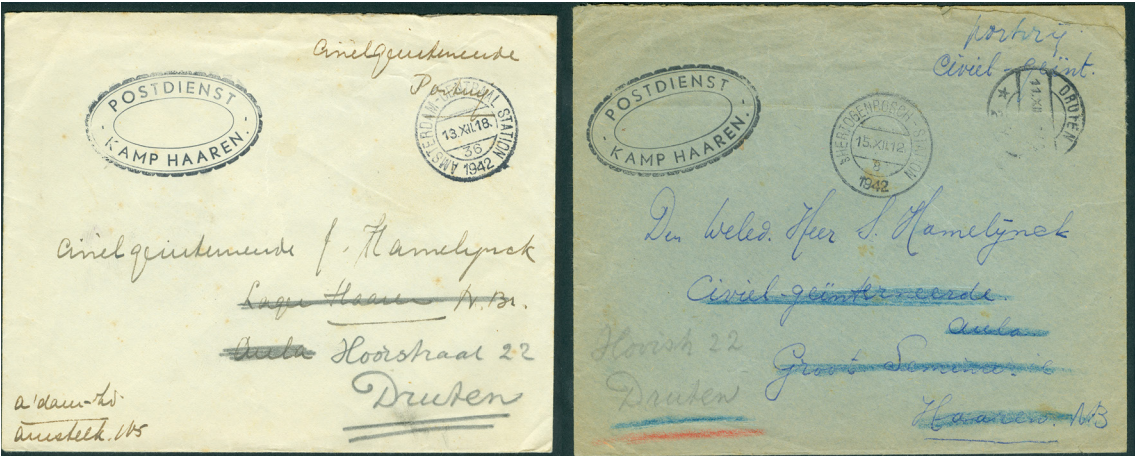 Civielgeinterneerde
Portvrij
POSTDIENST
KAMP HAAREN.
AMSTERDAM-CENTRAAL STATION
13.XII.18.
36
1942
Civielgeinterneerde J. Hamelijnck
Lager Haaren N. Br.
Aula Hoorstraat 22
Druten
A'dam-Zd.
Amstelk. 105
portvrij
Civiel-geïnt.
POSTDIENST
KAMP HAAREN.
'SHERTOGENBOSCH-STATION
15.XII.12.
8
1942
DRUTEN
11.XII
2
Den Weled. Heer S. Hamelijnck
Civiel-geïnterneerde
Aula
Groot Seminarie
Haaren. NB
22
Druten